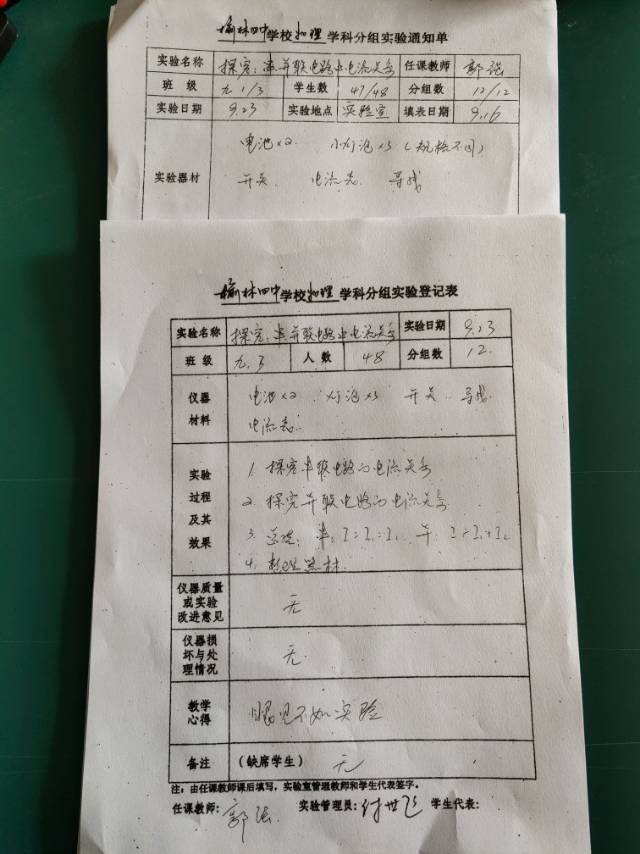 榆林四中学校物理学科分组实验通知单
实验名称 探究:串并联电路中电流关系 任课教师 郭强
班 级 九1/3 学生数 47/48 分组数 12/12
实验日期 9.23 实验地点 实验室 填表日期 9.16
实验器材 电池×2 小灯泡×3(规格不同)
开关 电流表 导线
榆林四中学校物理学科分组实验登记表
实验名称 探究:串并联电路中电流关系 实验日期 9.23
班 级 九.3 人 数 48 分组数 12.
仪器材料 电池×2 灯泡×3 开关 导线
电流表.
实验过程及其效果 1. 探究串联电路的电流关系
2. 探究并联电路的电流关系
3. 总结: 串: I=I₁=I₂ 并: I=I₁+I₂
4. 整理器材.
仪器质量或实验改进意见 无
仪器损坏与处理情况 无.
教学心得 眼见不如实验
备注 (缺席学生) 无
注:由任课教师课后填写,实验室管理教师和学生代表签字。
任课教师: 郭强 实验管理员: 付世飞 学生代表: